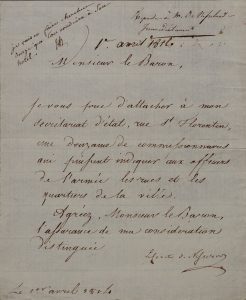 1er avril 1814.
Monsieur le Baron,
je vous prie d'attacher à mon
secrétariat d'état, rue St florentin,
une douzaine de commissionnaires
qui puissent indiquer aux officiers
de l'armée les rues et les
quartiers de la ville.
Agréez, Monsieur le Baron,
l'assurance de ma considération
distinguée
Le 1er avril 1814